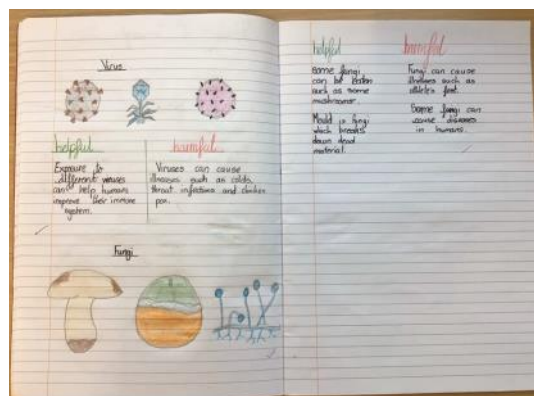 Virus
helpful
harmful
Exposure to
different viruses
can help humans
improve their immune
system.
Viruses can cause
illnesses such as colds,
throat infections and chicken
pox.
Fungi
helpful
harmful
Some fungi
can be eaten
such as some
mushrooms.
Mould is fungi
which breaks
down dead
material.
Fungi can cause
illnesses such as
athletes foot.
Some fungi can
cause diseases
in humans.